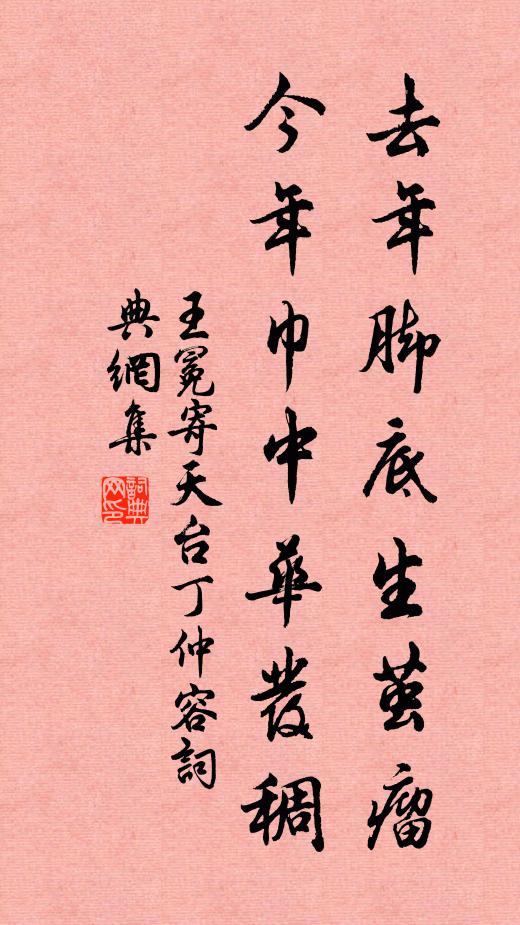 去年脚底生茧瘤
今年巾中華發稠
王冕寄天台丁仲容詞
典網集
詞典
网印